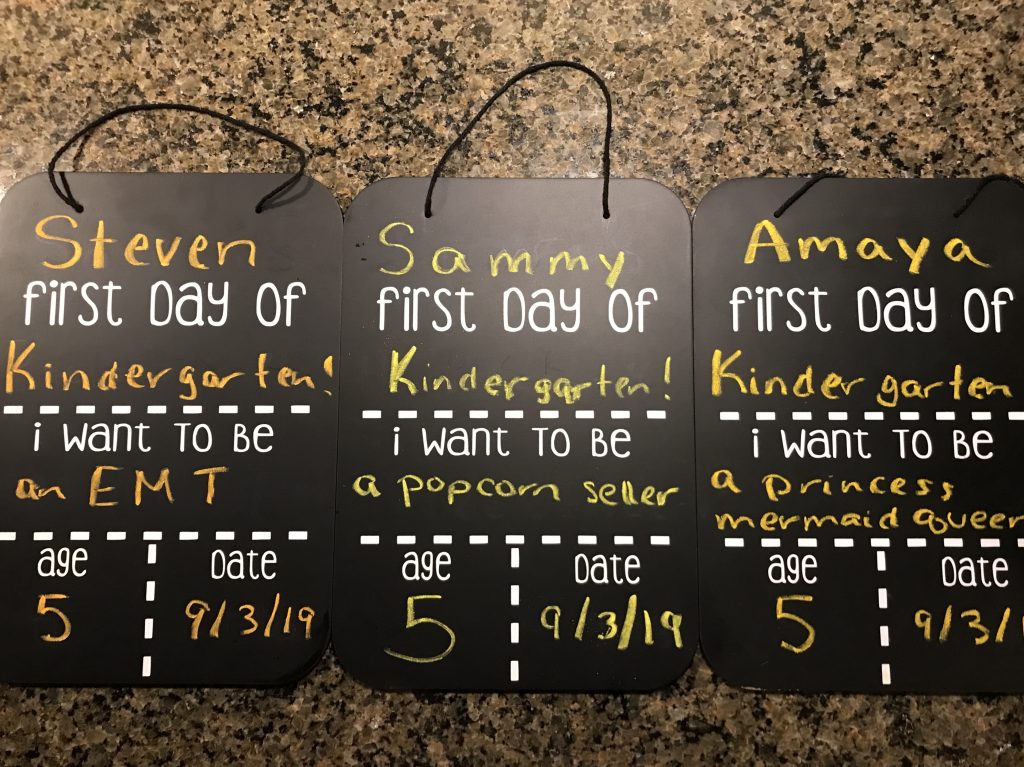 Steven
first day of
Kindergarten!
i want to be
an EMT
age
5
Date
9/3/19
Sammy
first day of
Kindergarten!
i want to be
a popcorn seller
age
5
Date
9/3/19
Amaya
first day of
Kindergarten
i want to be
a princess
mermaid queen
age
5
Date
9/3/1